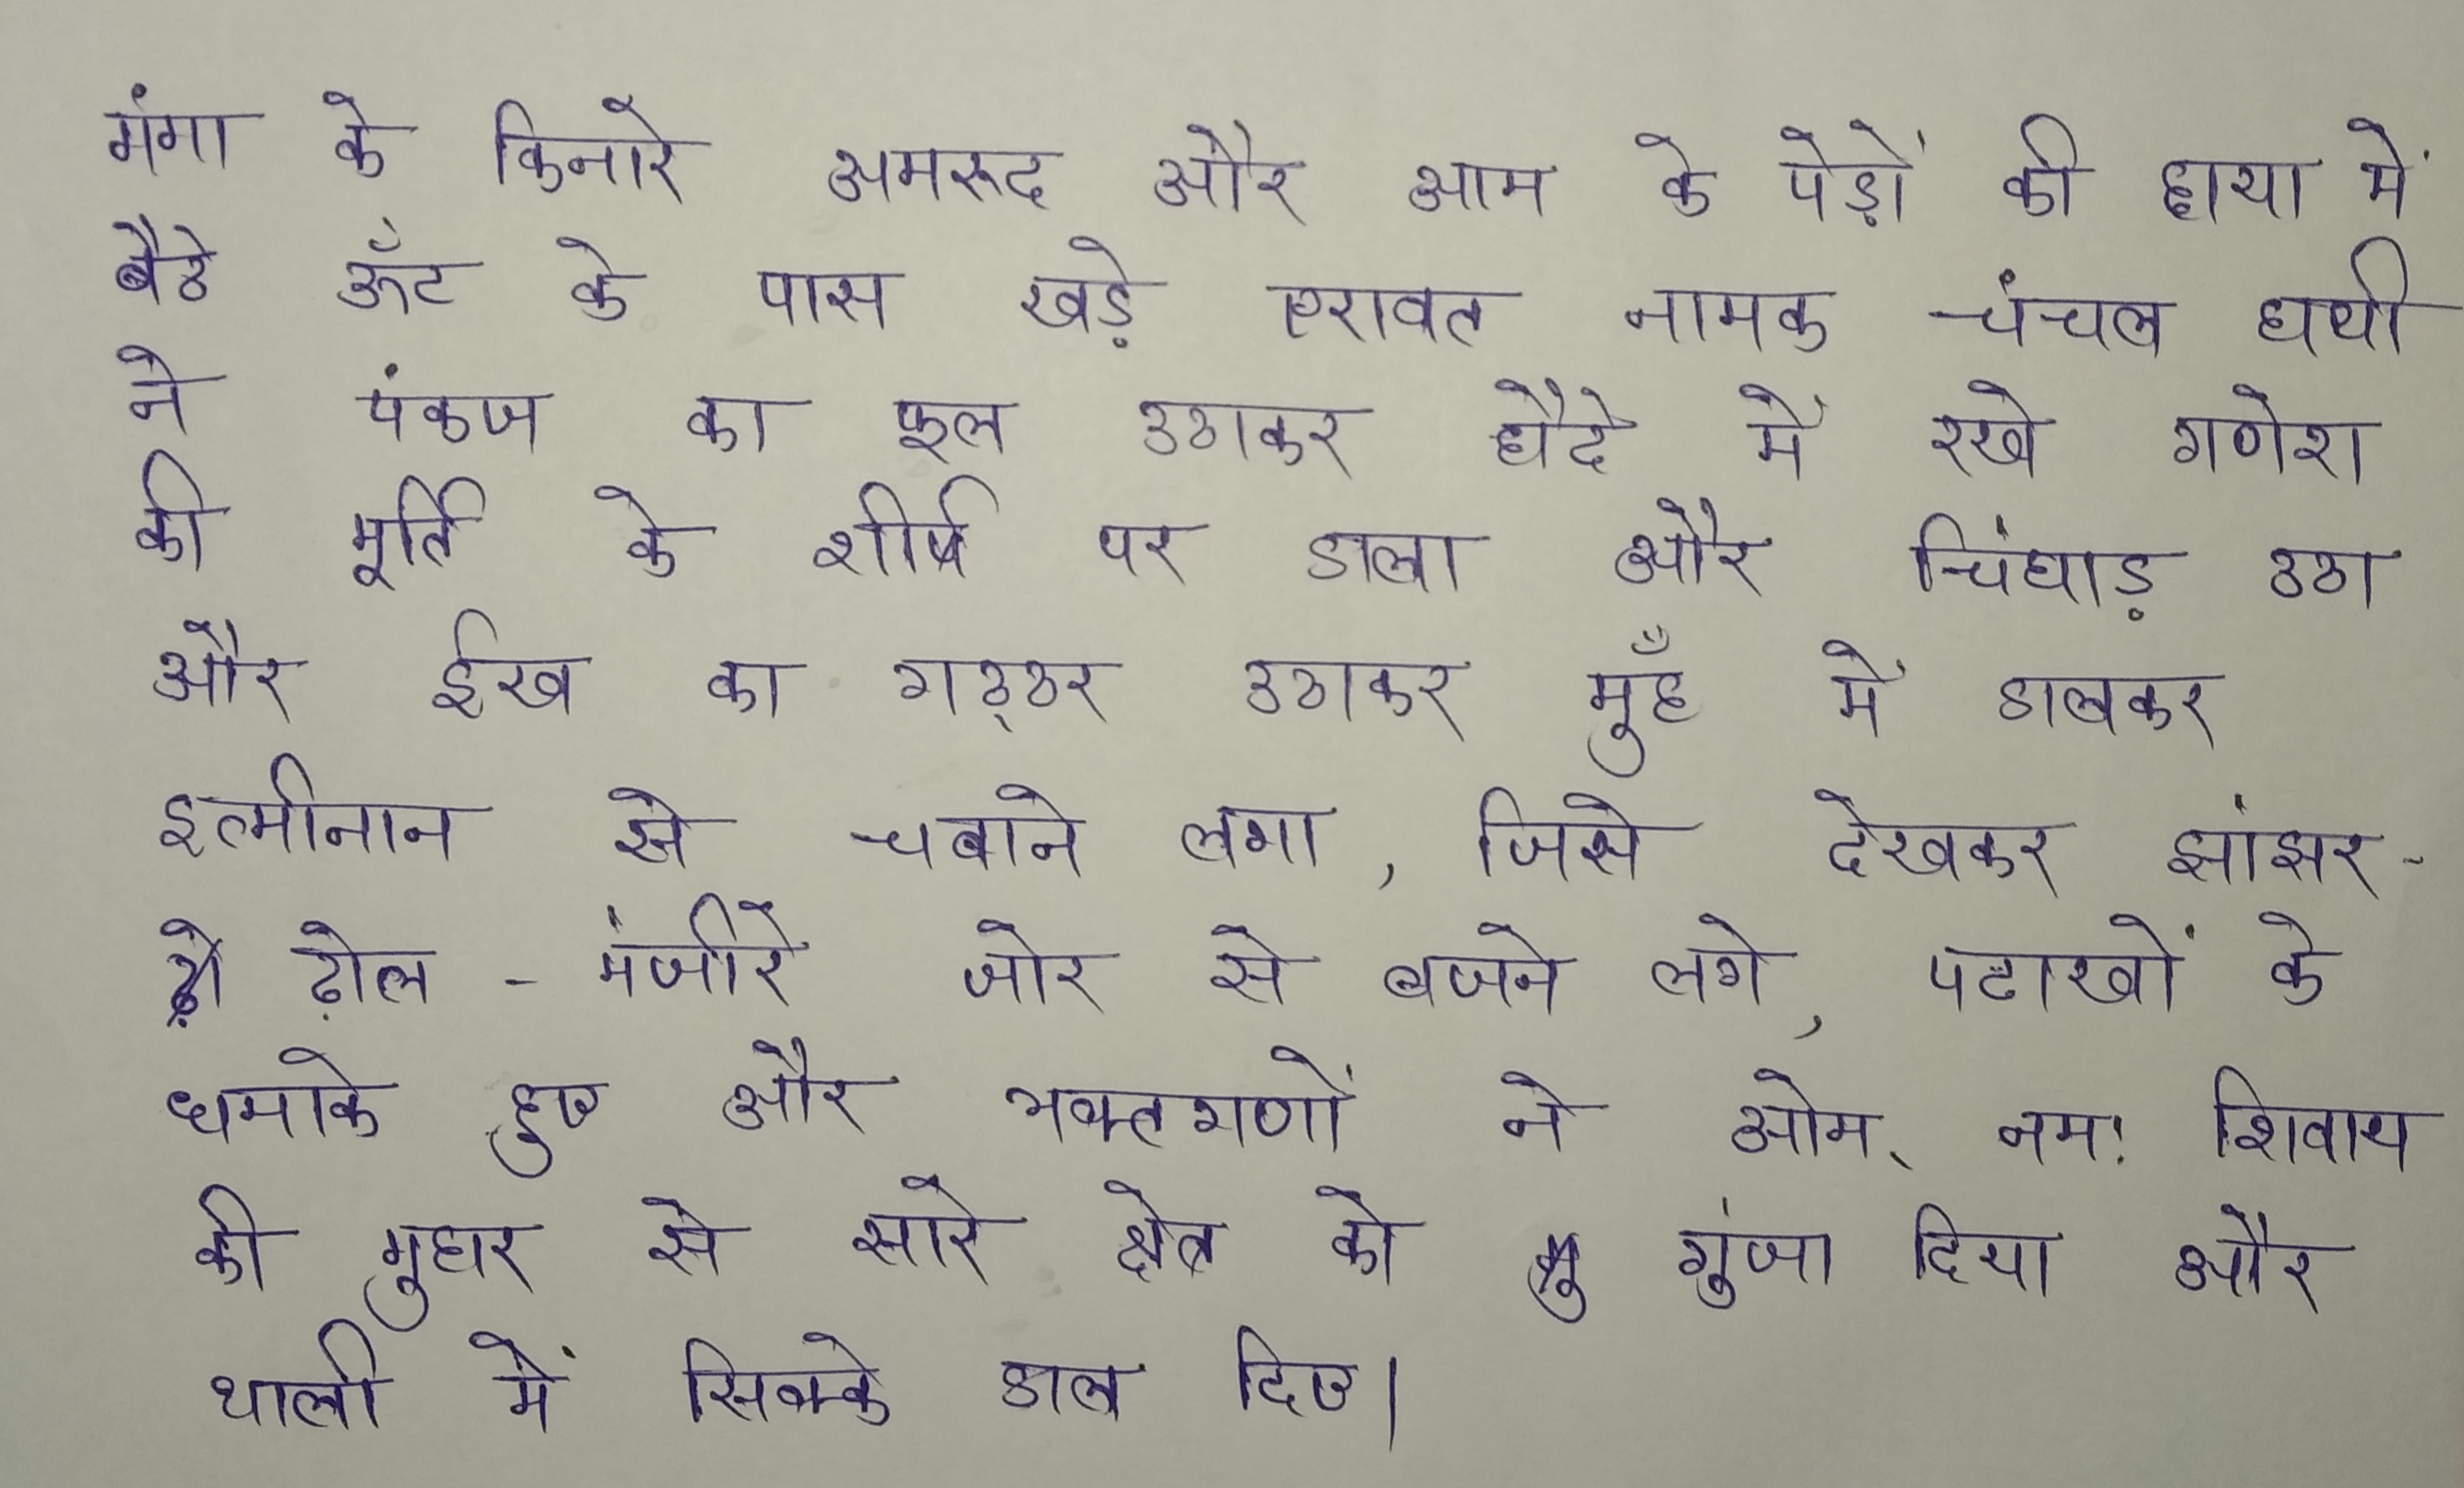 गंगा के किनारे अमरूद और आम के पेड़ों की छाया में
बैठे ऊँट के पास खड़े एरावत नामक चंचल हाथी
ने पंकज का फूल उठाकर हौदे में रखे गणेश
की मूर्ति के शीर्ष पर डाला और चिंघाड़ उठा
और ईख का गट्ठर उठाकर मुँह में डालकर
इत्मीनान से चबाने लगा, जिसे देखकर झांझर-
ढोल - मंजीरे जोर से बजने लगे, पटाखों के
धमाके हुए और भक्तगणों ने ओम् नमः शिवाय
की गुहार से सारे क्षेत्र को गुंजा दिया और
थाली में सिक्के डाल दिए।